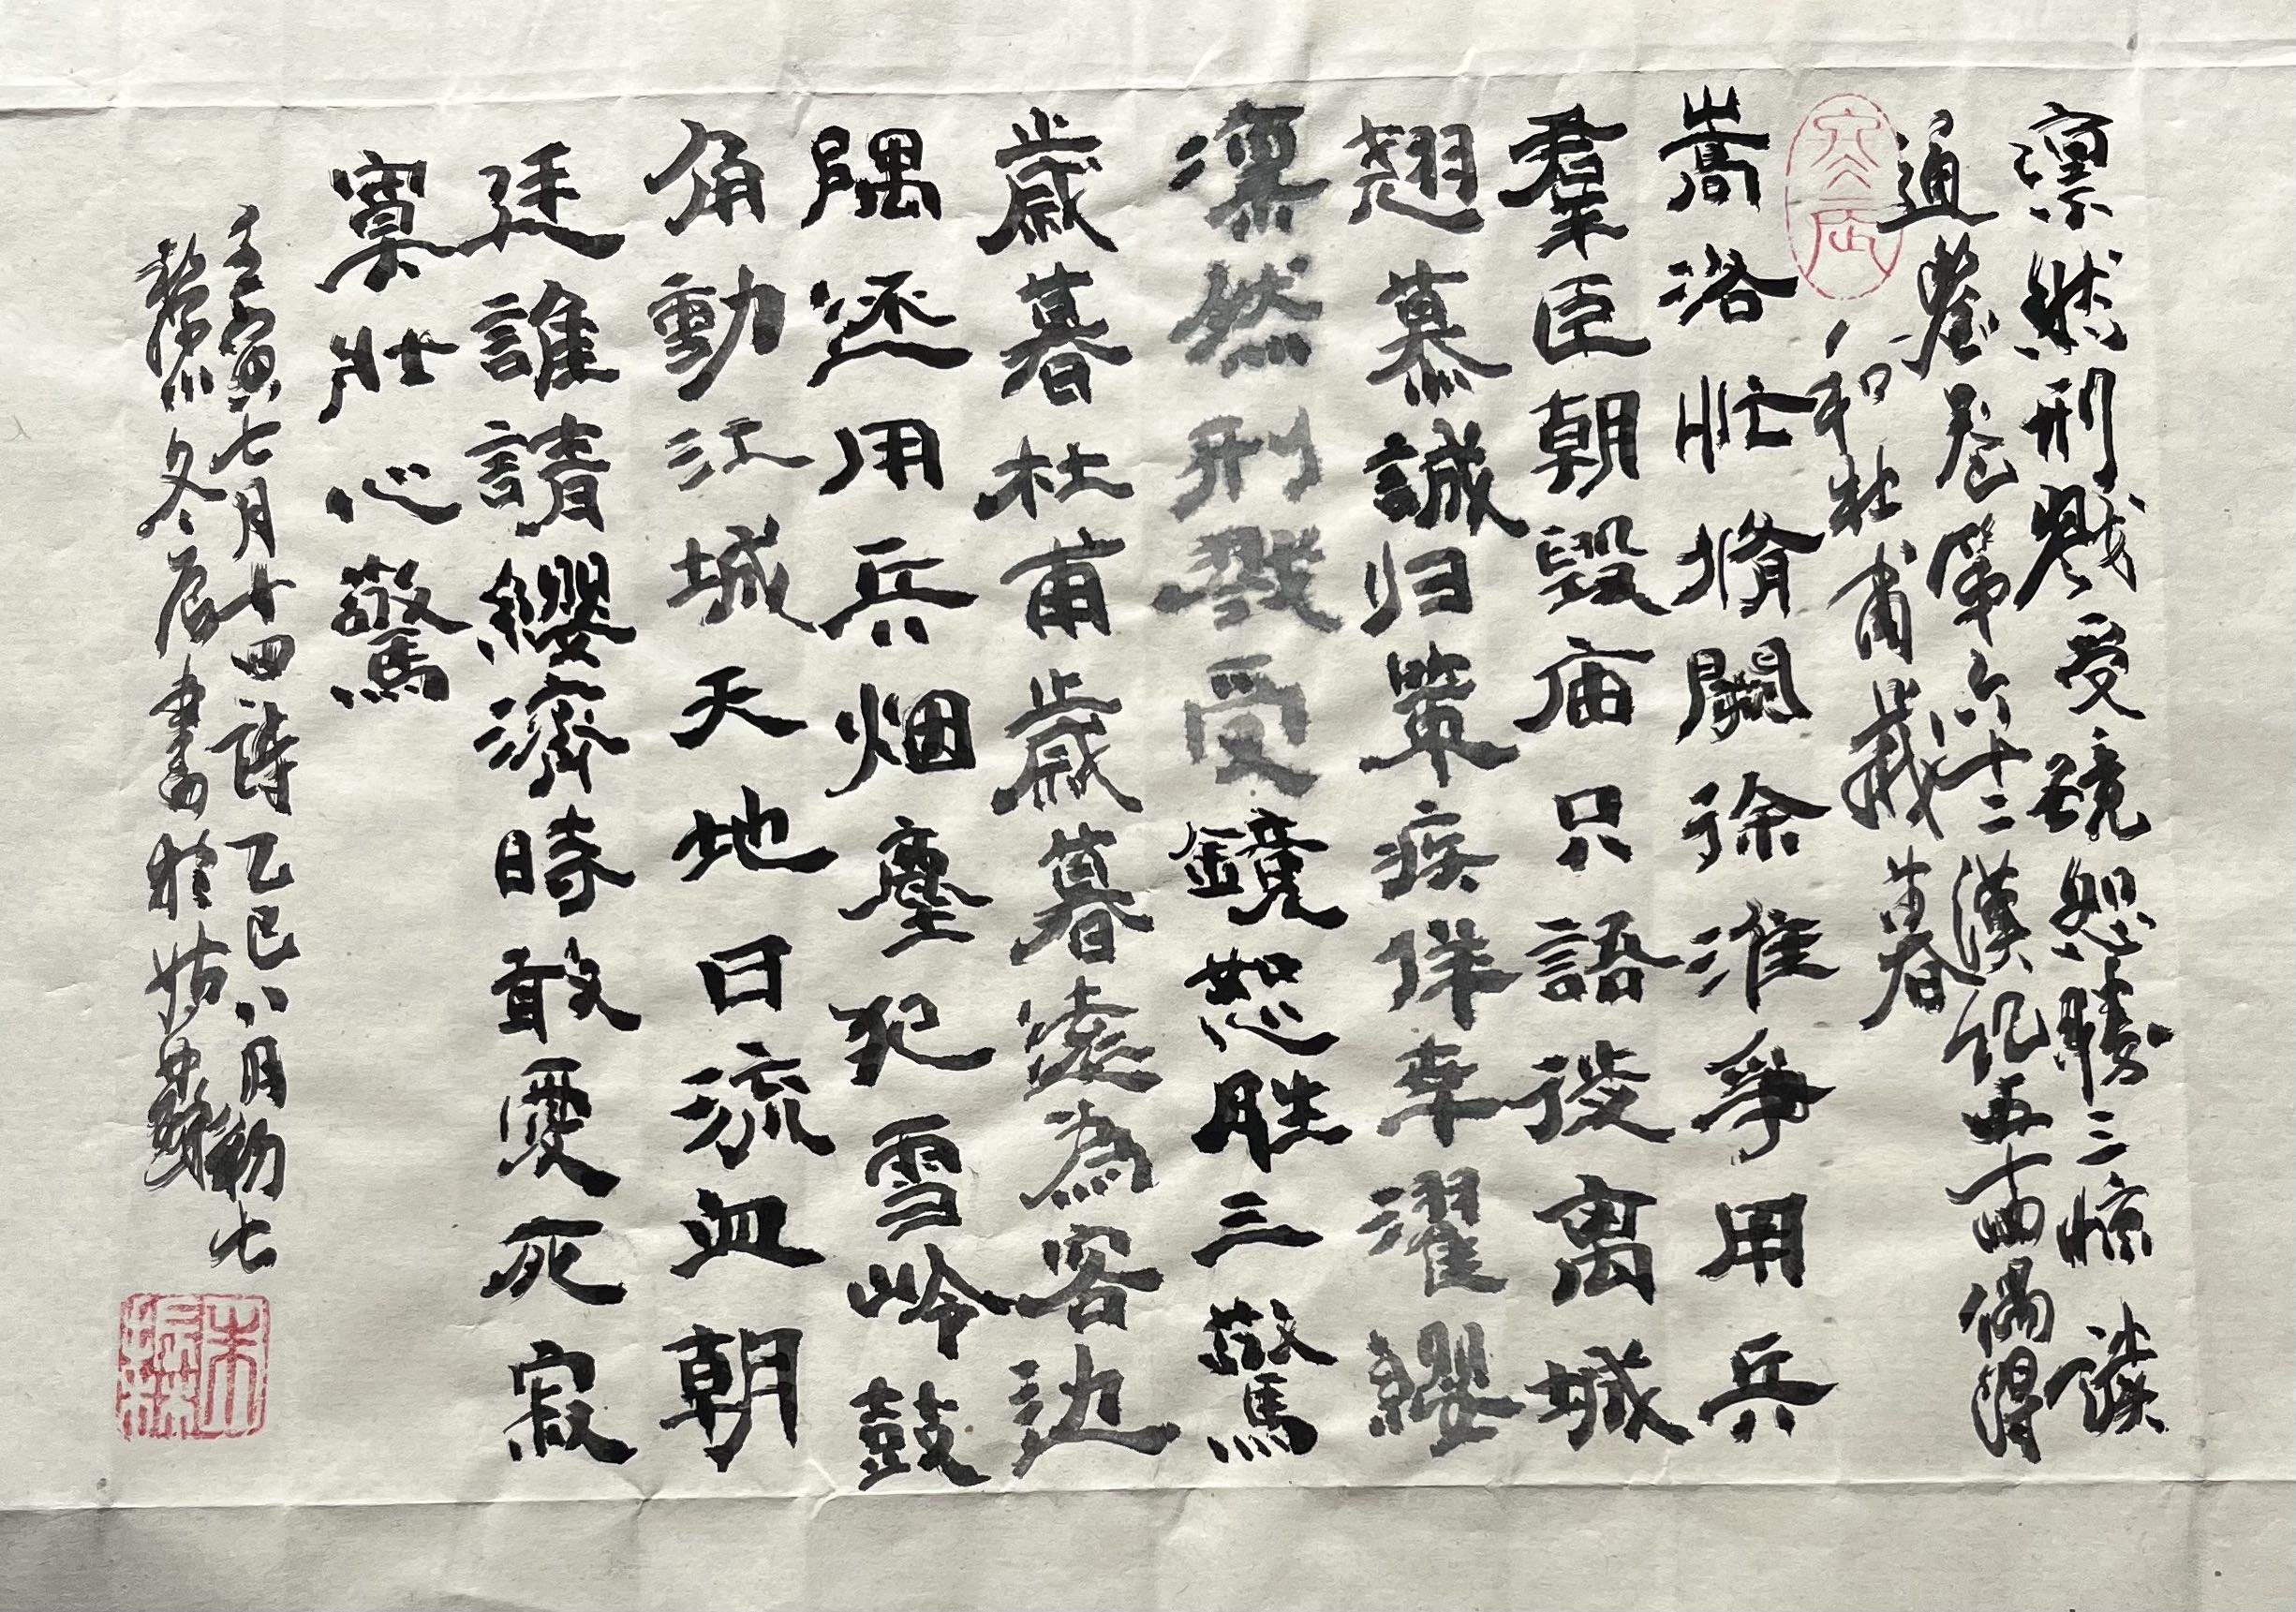 凛然刑戮受镜恕勝三惊 读
通鑒卷第六十二漢纪五十四偶得
和杜甫歲暮
嵩洛忙脩闕徐淮爭用兵
羣臣朝毀庙只語役离城
翘慕誠归策疾佯幸濯纓
凛然刑戮受鏡恕胜三驚
歲暮杜甫歲暮遠為客边
隅还用兵烟塵犯雪岭鼓
角動江城天地日流血朝
廷誰請纓濟時敢愛死寂
寞壯心驚
壬寅七月十四詩乙巳八月初七
冬辰書於姑蘇